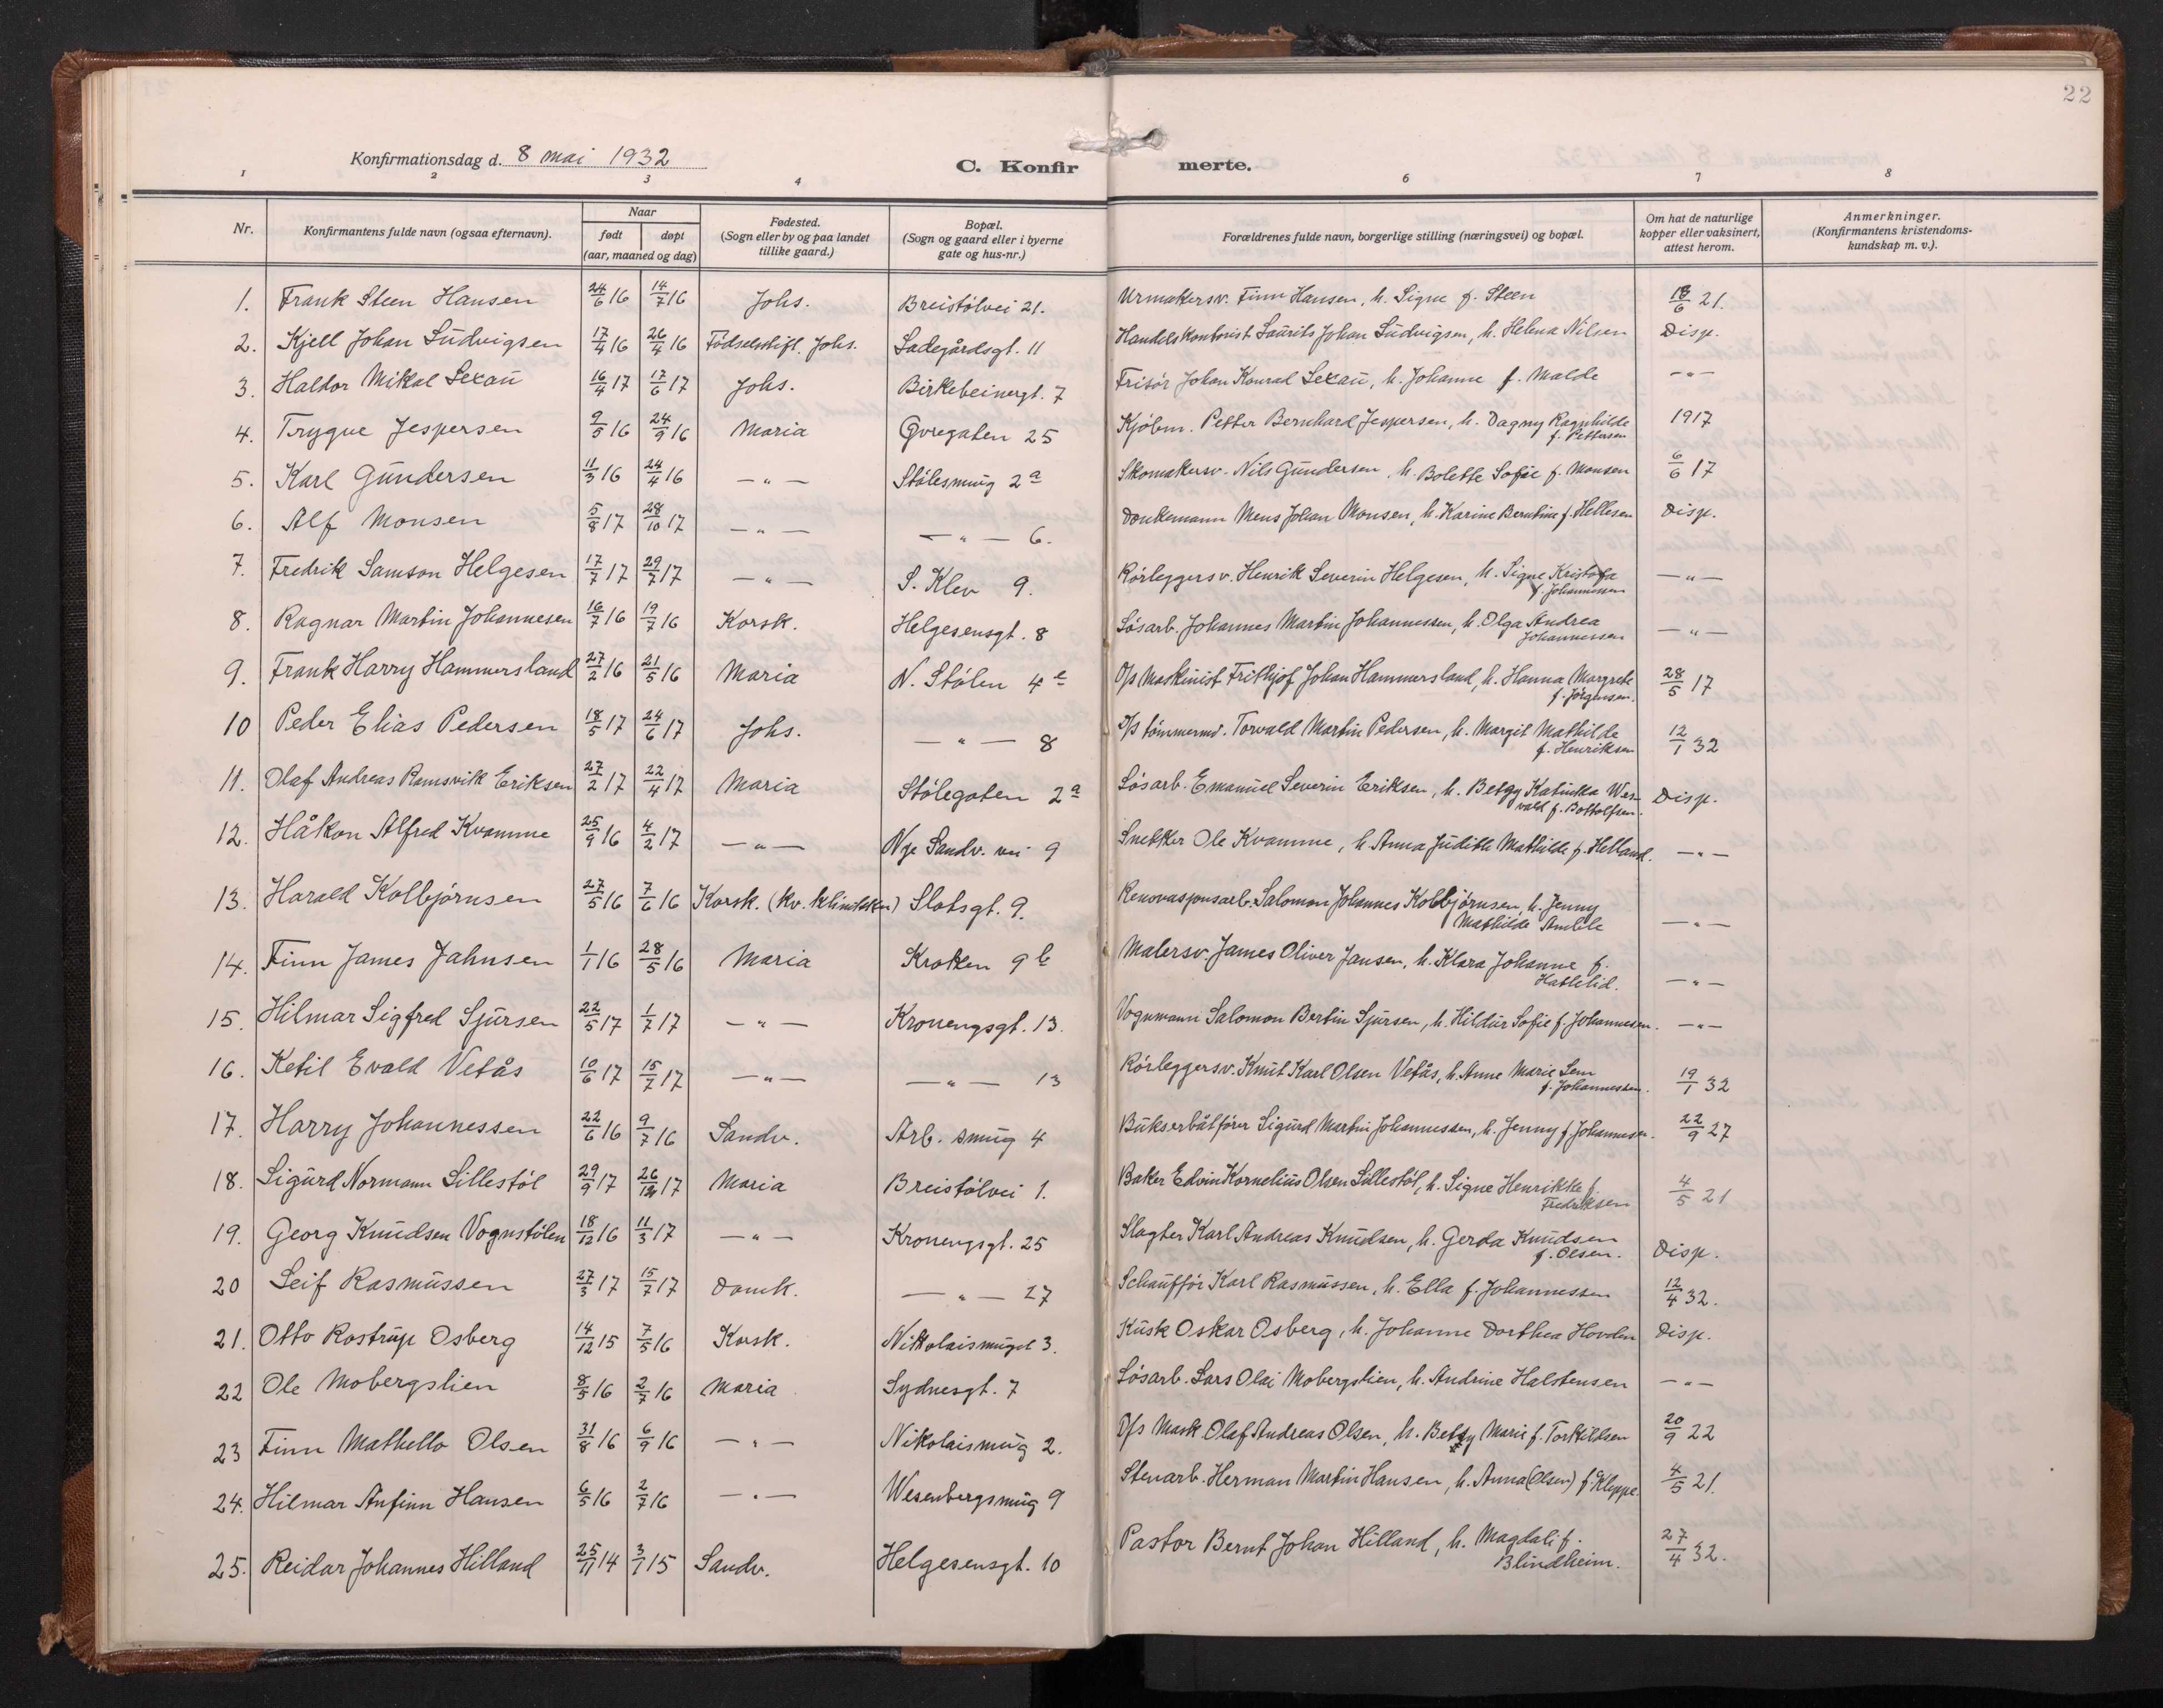 22
Konfirmationsdag d. 8 mai 1932
C. Konfirmerte.
1 2 3 4 6 7 8
Nr. | Konfirmantens fulde navn (ogsaa efternavn). | Naar født døpt (aar, maaned og dag) | Fødested. (Sogn eller by og paa landet tillike gaard.) | Bopæl. (Sogn og gaard eller i byerne gate og hus-nr.) | Forældrenes fulde navn, borgerlige stilling (næringsvei) og bopæl. | Om hat de naturlige kopper eller vaksinert, attest herom. | Anmerkninger. (Konfirmantens kristendoms-kundskap m. v.).
1. Frank Steen Hansen 24/6 16 14/7 16 Johs. Breistölvei 21. Urmakersv. Finn Hansen, h. Signe f. Steen 18/6 21.
2. Kjell Johan Ludvigsen 17/4 16 26/4 16 Födselsstift. Johs. Ladegårdsgt. 11 Handelskontorist Laurits Johan Ludvigsen, h. Helena Nilsen Disp.
3. Haldor Mikal Lexau 16/4 17 17/6 17 Johs. Birkebeinergt. 7 Frisör Johan Konrad Lexau, h. Johanne f. Malde — " —
4. Trygve Jespersen 9/5 16 24/9 16 Maria Øvregaten 25 Kjöbm. Petter Bernhard Jespersen, h. Dagny Ragnhilde f. Pettersen 1917
5. Karl Gundersen 11/3 16 24/4 16 — " — Stölesmug 2a Skomakersv. Nils Gundersen, h. Bolette Sofie f. Monsen 6/6 17
6. Alf Monsen 5/8 17 28/10 17 — " — — " — 6. Donkemann Mens Johan Monsen, h. Karine Berntine f. Hellesen Disp.
7. Fredrik Samson Helgesen 17/7 17 29/7 17 — " — S. Klev 9. Rörleggersv. Henrik Severin Helgesen, h. Signe Kristofa f. Johannessen — " —
8. Ragnar Martin Johannesen 16/7 16 19/7 16 Korsk. Helgesensgt. 8 Lösarb. Johannes Martin Johannessen, h. Olga Andrea Johannessen — " —
9. Frank Harry Hammersland 27/2 16 21/5 16 Maria N. Stölen 4e D/s Maskinist Frithjof Johan Hammersland, h. Hanna Margrete f. Jörgensen. 28/5 17
10 Peder Elias Pedersen 18/5 17 24/6 17 Johs. — " — 8 D/s tömmerm. Torvald Martin Pedersen, h. Margit Mathilde f. Henriksen 12/1 32
11. Olaf Andreas Ramsvik Eriksen 27/2 17 22/4 17 Maria Stölegaten 2a Lösarb. Emanuel Severin Eriksen, h. Betzy Katinka Wesvald f. Bottolfsen. Disp.
12. Håkon Alfred Kvamme 25/9 16 4/2 17 — " — Nye Sandv. vei 9 Snekker Ole Kvamme, h. Anna Judith Mathilde f. Helland. — " —
13. Harald Kolbjörnsen 27/5 16 7/6 16 Korsk. (kv. klinikken) Slotsgt. 9. Renovasjonsarb. Salomon Johannes Kolbjörnsen, h. Jenny Mathilde Amble — " —
14. Finn James Jahnsen 1/1 16 28/5 16 Maria Kroken 9b Malersv. James Oliver Jansen, h. Klara Johanne f. Hatlelid. — " —
15. Hilmar Sigfred Sjursen 22/5 17 1/7 17 — " — Kronengsgt. 13. Vognmann Salomon Bertin Sjursen, h. Hildur Sofie f. Johannesen. — " —
16. Ketil Evald Vetås 10/6 17 15/7 17 — " — — " — 13 Rörleggersv. Knut Karl Olsen Vetås, h. Anne Marie Lem f. Johannessen. 19/1 32
17. Harry Johannessen 22/6 16 9/7 16 Sandv. Arb. smug 4 Bukserbåtförer Sigurd Martin Johannessen, h. Jenny f. Johannesen. 22/9 27
18. Sigurd Normann Lillestöl 29/9 17 26/12 17 Maria Breistölvei 1. Baker Edvin Kornelius Olsen Lillestöl, h. Signe Henrikke f. Fredriksen 4/5 21
19. Georg Knudsen Vognstölen 18/12 16 11/3 17 — " — Kronengsgt. 25 Slagter Karl Andreas Knudsen, h. Gerda Knudsen f. Olsen. Disp.
20 Leif Rasmussen 27/3 17 15/7 17 Domk. — " — 27 Schaufför Karl Rasmussen, h. Ella f. Johannessen 12/4 32.
21. Otto Rostrup Osberg 14/12 15 7/5 16 Korsk. Nikolaismuget 3. Kusk Oskar Osberg, h. Johanne Dorthea Hovden Disp.
22 Ole Mobergslien 8/5 16 2/7 16 Maria Sydnesgt. 7 Lösarb. Lars Olai Mobergslien, h. Andrine Halstensen — " —
23 Finn Mathello Olsen 31/8 16 6/9 16 — " — Nikolaismug 2. D/s Mask Olaf Andreas Olsen, h. Betzy Marie f. Torkildsen 20/9 22
24. Hilmar Anfinn Hansen 6/5 16 2/7 16 — " — Wesenbergsmug 9 Stenarb. Herman Martin Hansen, h. Anna (Olsen) f. Kleppe. 4/5 21.
25. Reidar Johannes Hilland 25/11 14 3/1 15 Sandv. Helgesensgt. 10 Pastor Bernt Johan Hilland, h. Magdali f. Blindheim. 27/4 32.